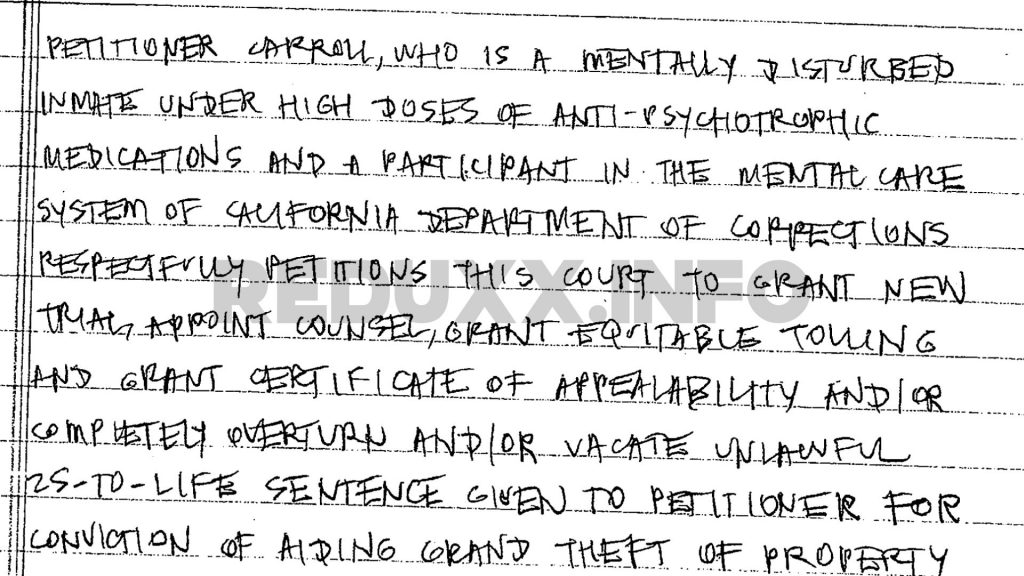 PETITIONER CARROLL, WHO IS A MENTALLY DISTURBED
INMATE UNDER HIGH DOSES OF ANTI-PSYCHOTROPHIC
MEDICATIONS AND A PARTICIPANT IN THE MENTAL CARE
SYSTEM OF CALIFORNIA DEPARTMENT OF CORRECTIONS
RESPECTFULLY PETITIONS THIS COURT TO GRANT NEW
REDUXX.INFO
TRIAL, APPOINT COUNSEL, GRANT EQUITABLE TOLLING
AND GRANT CERTIFICATE OF APPEALABILITY AND/OR
COMPLETELY OVERTURN AND/OR VACATE UNLAWFUL
25-TO-LIFE SENTENCE GIVEN TO PETITIONER FOR
CONVICTION OF AIDING GRAND THEFT OF PROPERTY